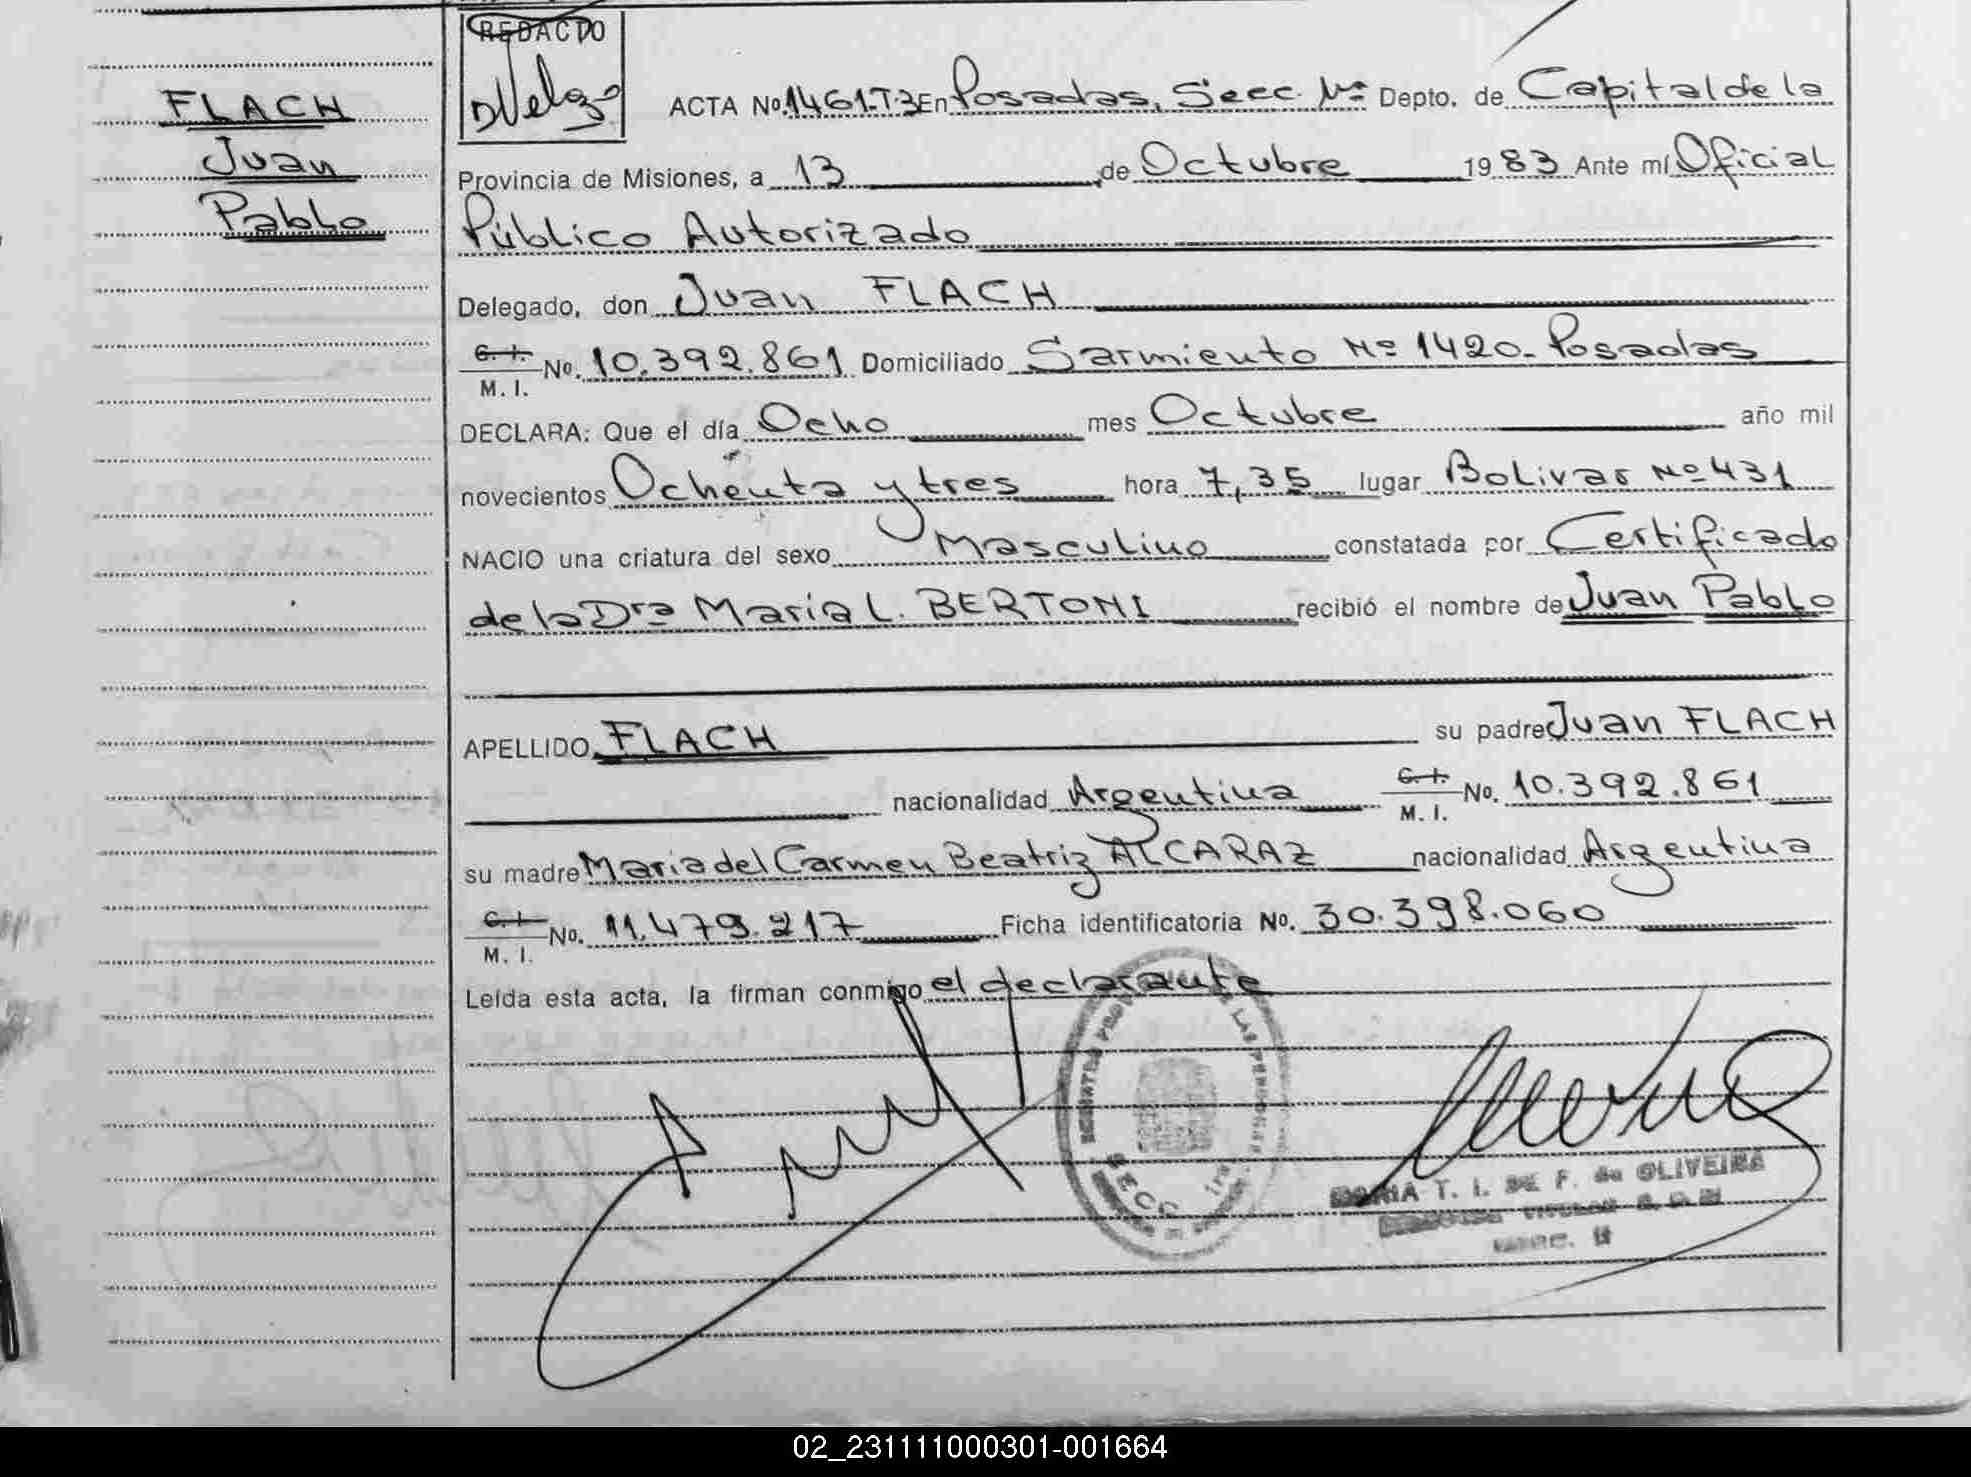 REDACTO
DVelazo
FLACH
Juan
Pablo
ACTA No. 1461-T-3 En Posadas, Secc. 1ra Depto. de Capital de la
Provincia de Misiones, a 13 de Octubre 1983 Ante mí Oficial
Público Autorizado
Delegado, don Juan FLACH
C. I.
M. I. No. 10.392.861 Domiciliado Sarmiento Nº 1420_ Posadas
DECLARA: Que el día Ocho mes Octubre año mil
novecientos Ochenta y tres hora 7,35 lugar Bolivar Nº 431
NACIO una criatura del sexo Masculino constatada por Certificado
de la Dra Maria L. BERTONI recibió el nombre de Juan Pablo
APELLIDO FLACH su padre Juan FLACH
nacionalidad Argentina C. I.
M. I. No. 10.392.861
su madre Maria del Carmen Beatriz ALCARAZ nacionalidad Argentina
C. I.
M. I. No. 11.479.217 Ficha identificatoria No. 30.398.060
Leída esta acta, la firman conmigo el declarante
LAS PERSONAS
SECC. 1ra
T. I. DE F. de OLIVEIRA
02_231111000301-001664